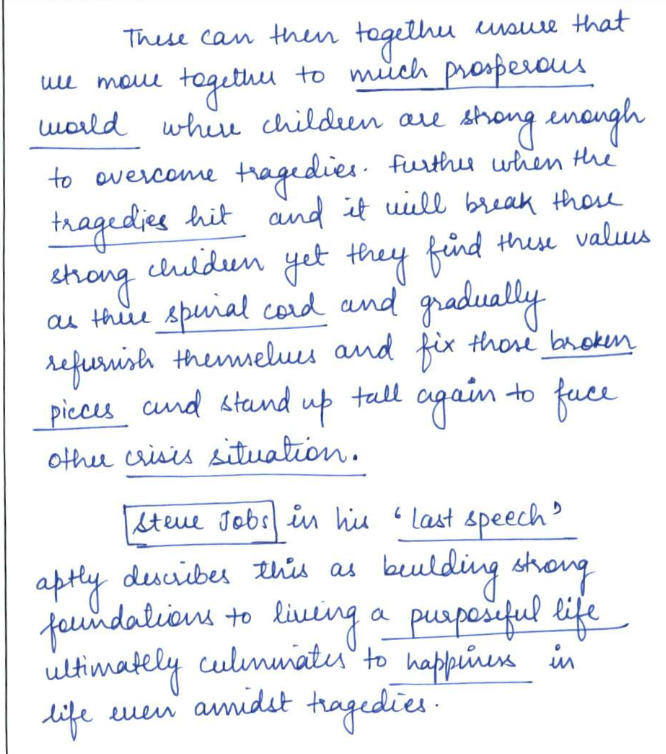 These can then together ensure that
we move together to much prosperous
world where children are strong enough
to overcome tragedies. Further when the
tragedies hit and it will break those
strong children yet they find these values
as there spinal cord and gradually
refurnish themselves and fix those broken
pieces and stand up tall again to face
other crisis situation.
Steve Jobs in his 'last speech'
aptly describes this as building strong
foundations to living a purposeful life
ultimately culminates to happiness in
life even amidst tragedies.